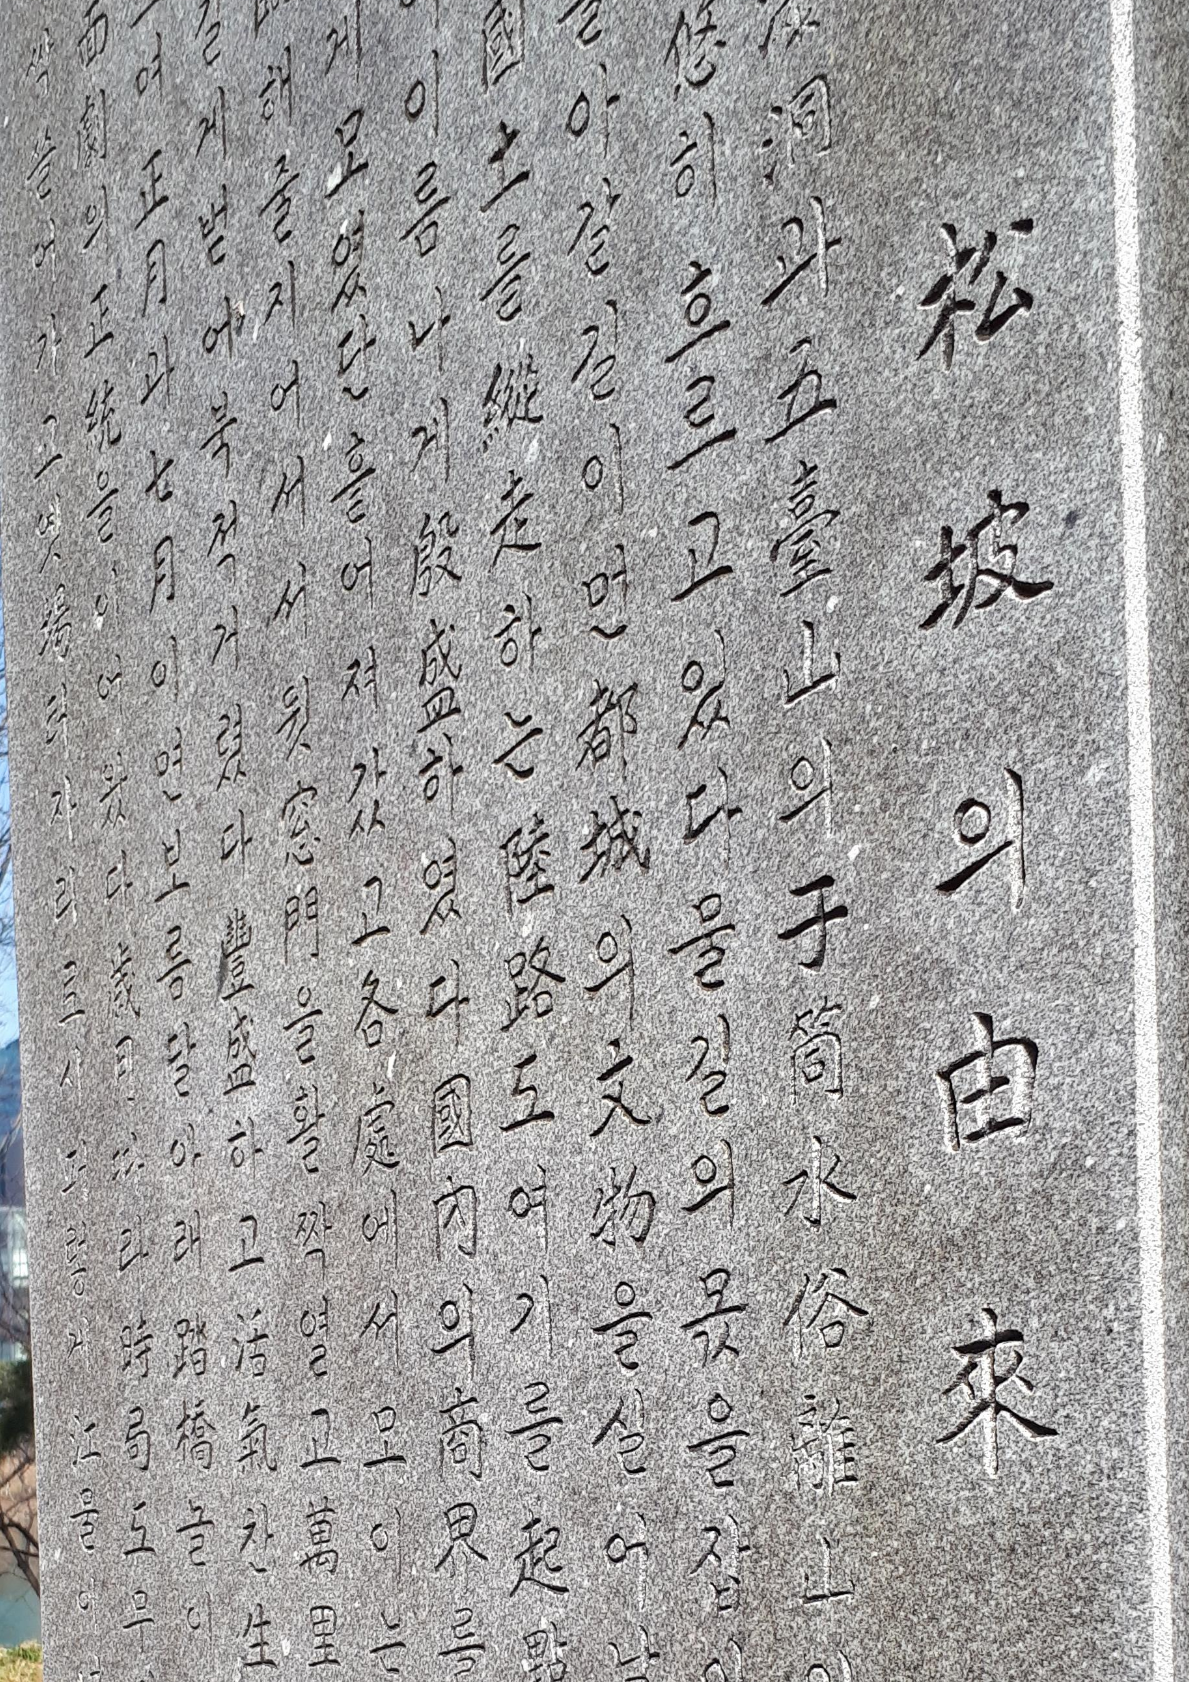 松坡의由來
洞과五臺山의于筒水俗離山
悠히흐르고있다물길의몫을잡
아갈길이면都城의文物을실어
國土를縱走하는陸路도여기를起點
이름나게殷盛하였다國內의商界를
게모였단흩어져갔고各處에서모이는
해줄지어서서뒷窓門을활짝열고萬里
길게벋어북적거렸다豐盛하고活氣찬生
여正月과七月이면보름달아래踏橋놀이
面劇의正統을이어왔다歲月따라時局도무
싹쓸어가그옛場터자리르사江물이